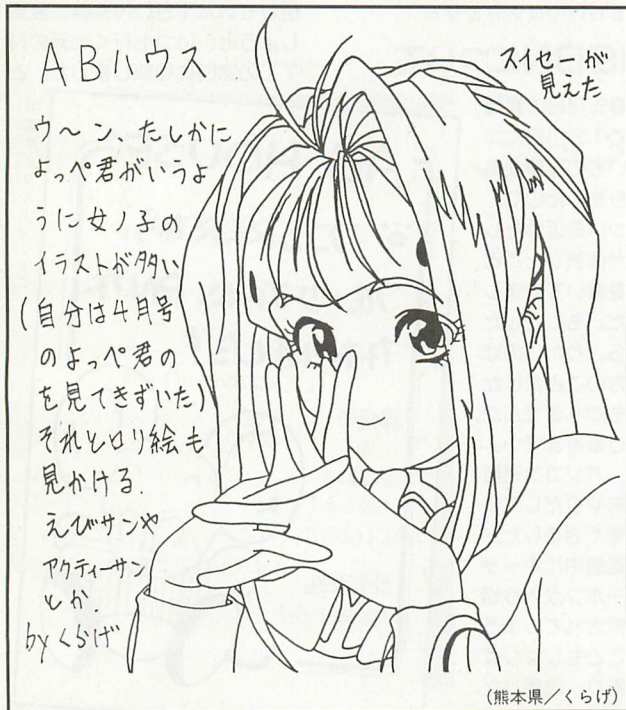 ABハウス
ウ〜ン、たしかに
よっペ君がいうよ
うに女ノ子の
イラストが多い
(自分は4月号
のよっペ君の
を見てきずいた)
それとロリ絵も
見かける
えびサンや
アクティーサン
とか
byくらげ
スイセーが
見えた
(熊本県/くらげ)